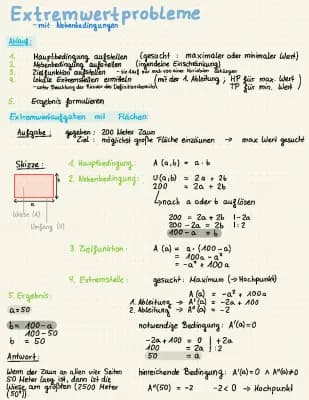 Extremwertprobleme
- mit Nebenbedingungen
Ablauf:
1. Hauptbedingung aufstellen (gesucht: maximaler oder minimaler Wert)
2. Nebenbedingung aufstellen (irgendeine Einschränkung)
3. Zielfunktion aufstellen - sie darf nur noch von einer Variablen abhängen
4. lokale Extremstellen ermitteln (mit der 1. Ableitung, HP für max. Wert)
- unter Beachtung der Ränder des Definitionsbereichs TP für min. Wert
5. Ergebnis formulieren
Extremwertaufgaben mit Flächen:
Aufgabe: gegeben: 200 Meter Zaun
Ziel: möglichst große Fläche einzäunen → max Wert gesucht
Skizze:
b
a
Wiese (A)
Umfang (U)
1. Hauptbedingung: A(a,b) = a · b
2. Nebenbedingung: U(a,b) = 2a + 2b
200 = 2a + 2b
↳ nach a oder b auflösen
200 = 2a + 2b |-2a
200 - 2a = 2b |:2
100 - a = b
3. Zielfunktion: A(a) = a · (100-a)
= 100a - a²
= -a² + 100a
4. Extremstelle: gesucht: Maximum (→ Hochpunkt)
A(a) = -a² + 100a
1. Ableitung → A'(a) = -2a + 100
2. Ableitung → A"(a) = -2
notwendige Bedingung: A'(a)=0
-2a + 100 = 0 | +2a
100 = 2a | :2
50 = a
hinreichende Bedingung: A'(a)=0 ∧ A"(a)≠0
A"(50) = -2 -2<0 → Hochpunkt
5. Ergebnis:
a=50
b = 100-a
100-50
b = 50
Antwort:
Wenn der Zaun an allen vier Seiten
50 Meter lang ist, dann ist die
Wiese am größten (2500 Meter
(50²))